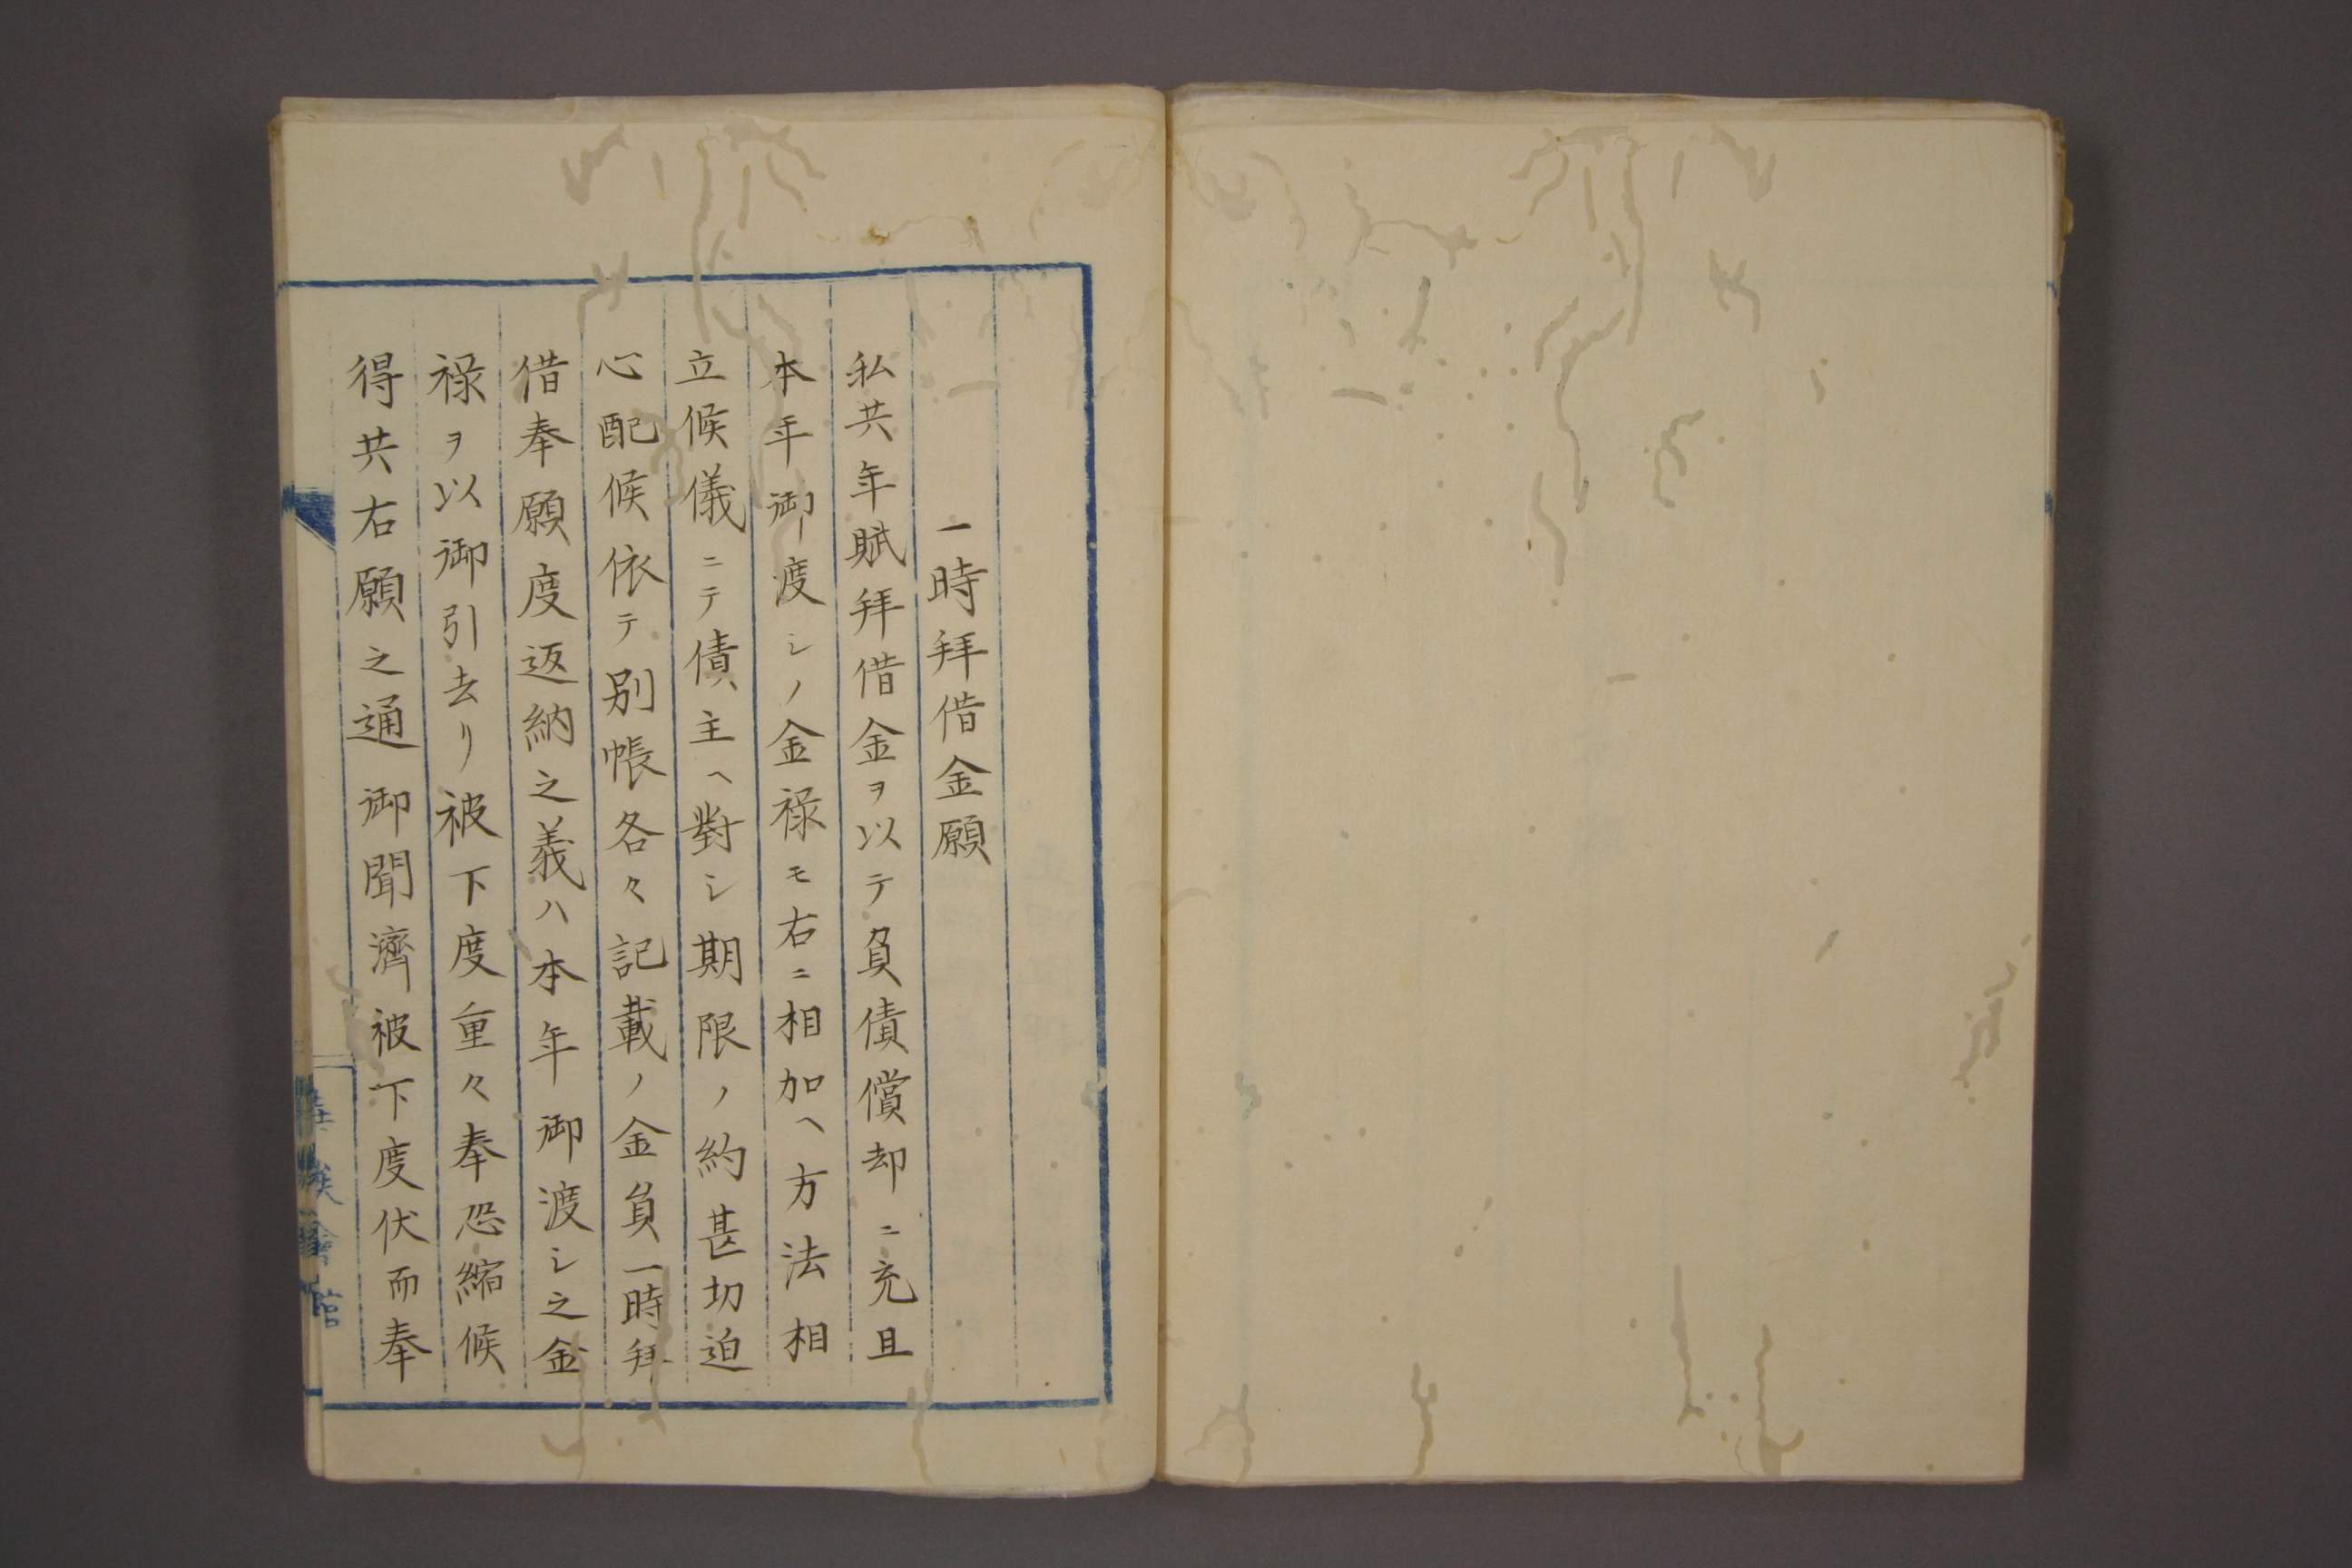 一時拜借金願
私共年賦拜借金ヲ以テ負債償却ニ充且
本年御渡シノ金禄モ右ニ相加ヘ方法相
立候儀ニテ債主ヘ對シ期限ノ約甚切迫
心配候依テ別帳各々記載ノ金負一時拜
借奉願度返納之義ハ本年御渡シ之金
禄ヲ以御引去リ被下度重々奉恐縮候
得共右願之通御聞濟被下度伏而奉
族會館